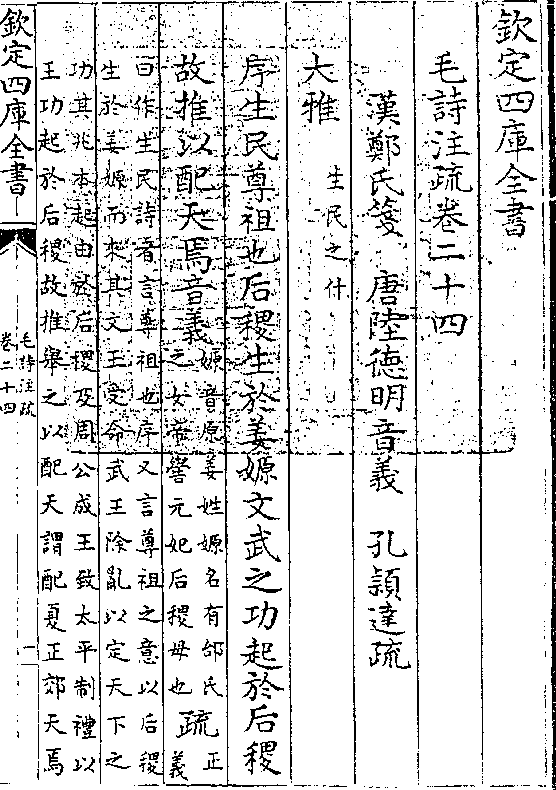 欽定四庫全書
毛詩注疏卷二十四
漢鄭氏箋 唐陸徳明音義 孔頴達疏
大雅 生民之什
序生民尊祖也后稷生於姜嫄文武之功起於后稷
故推以配天焉音義 嫄音原姜姓嫄名有邰氏之女帝嚳元妃后稷母也 疏 正義
曰作生民詩者言尊祖也序又言尊祖之意以后稷
生於姜嫄而來其文王受命武王除亂以定天下之
功其兆本起由於后稷及周公成王致太平制禮以
王功起於后稷故推舉之以配天謂配夏正郊天焉
欽定四庫全書
毛詩注疏
卷二十四
一